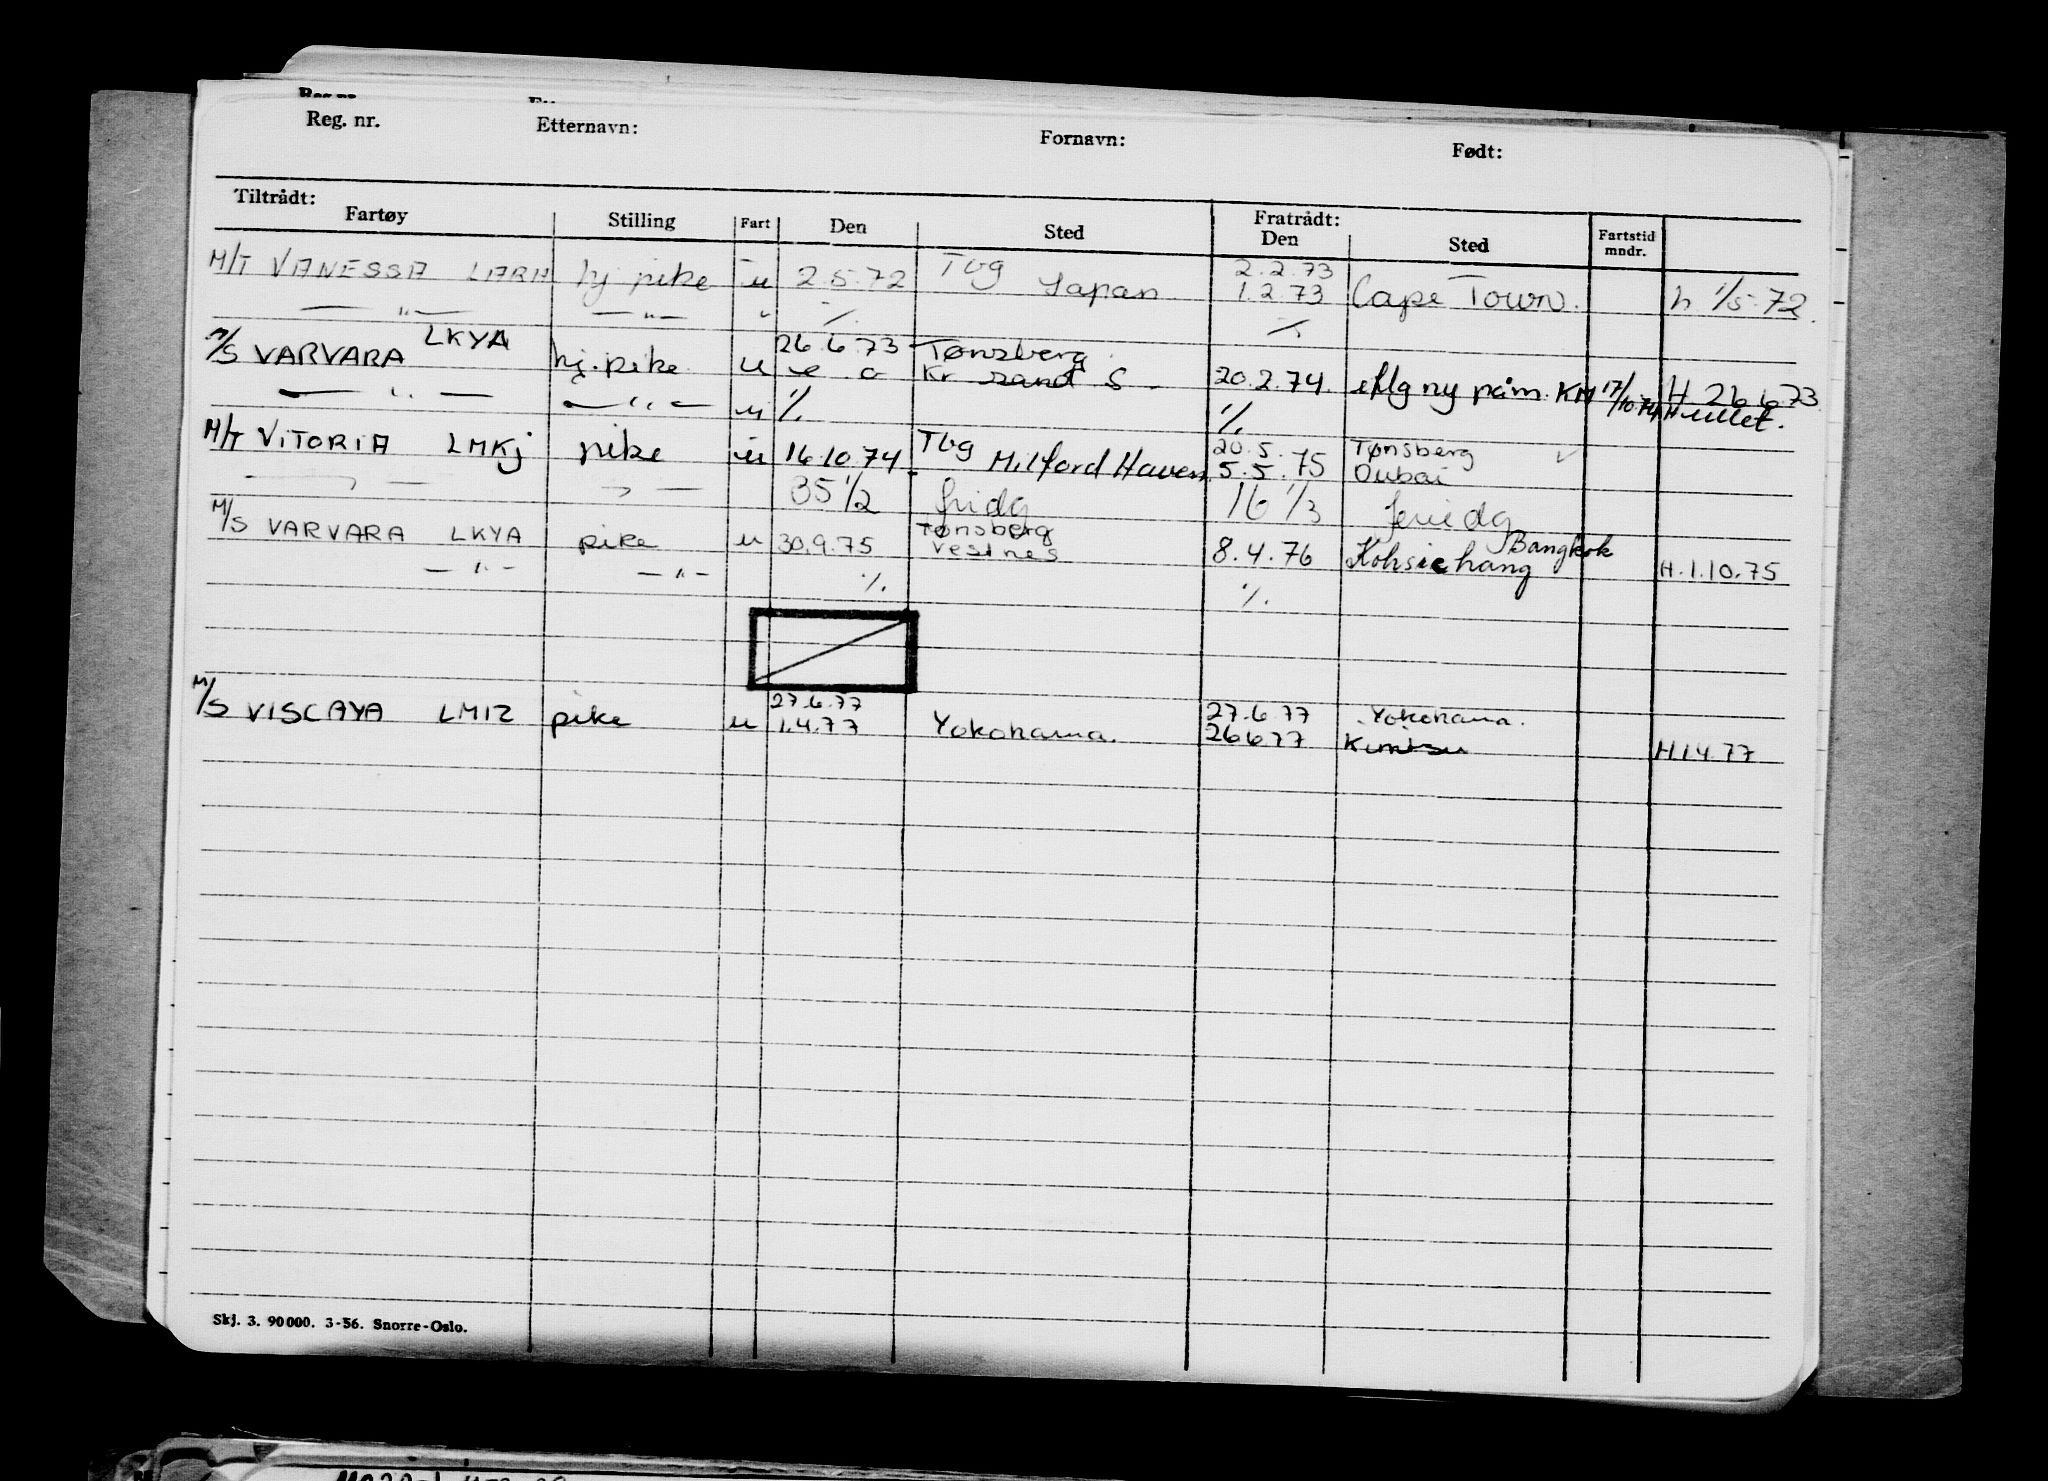 Reg. nr. Etternavn: Fornavn: Født:
Tiltrådt: Fratrådt:
Fartøy Stilling Fart Den Sted Den Sted Fartstid mndr.
2.2.73
M/T VANESSA LARM hj pike u 2.5.72 Tbg Japan 1.2.73 Cape Town. h 1/5-72.
— " — — " — " ⁒ ⁒
LKYA 26.6.73 Tønsberg
M/S VARVARA hj. pike u Kr sand S - 20.2.74. ny påm. KM 17/10.74 H 26.6.73
— " — — " — u ⁒ ⁒
20.5. Tønsberg
M/T VITORIA LMKJ pike u 16.10.74 Tbg Milford Haven 5.5.75 Dubai
— " — — " — 35 1/2 fridg 16 1/3 feriedg
Tønsberg Bangkok
M/S VARVARA LKYA pike u 30.9.75 Vestnes 8.4.76 Kohsichang H.1.10.75
— " — — " — ⁒ ⁒
27.6.77 27.6.77 Yokohama.
M/S VISCAYA LMIZ pike u 1.4.77 Yokohama. 26677 Kimitsu H.1.4.77
Skj. 3. 90000. 3-56. Snorre-Oslo.